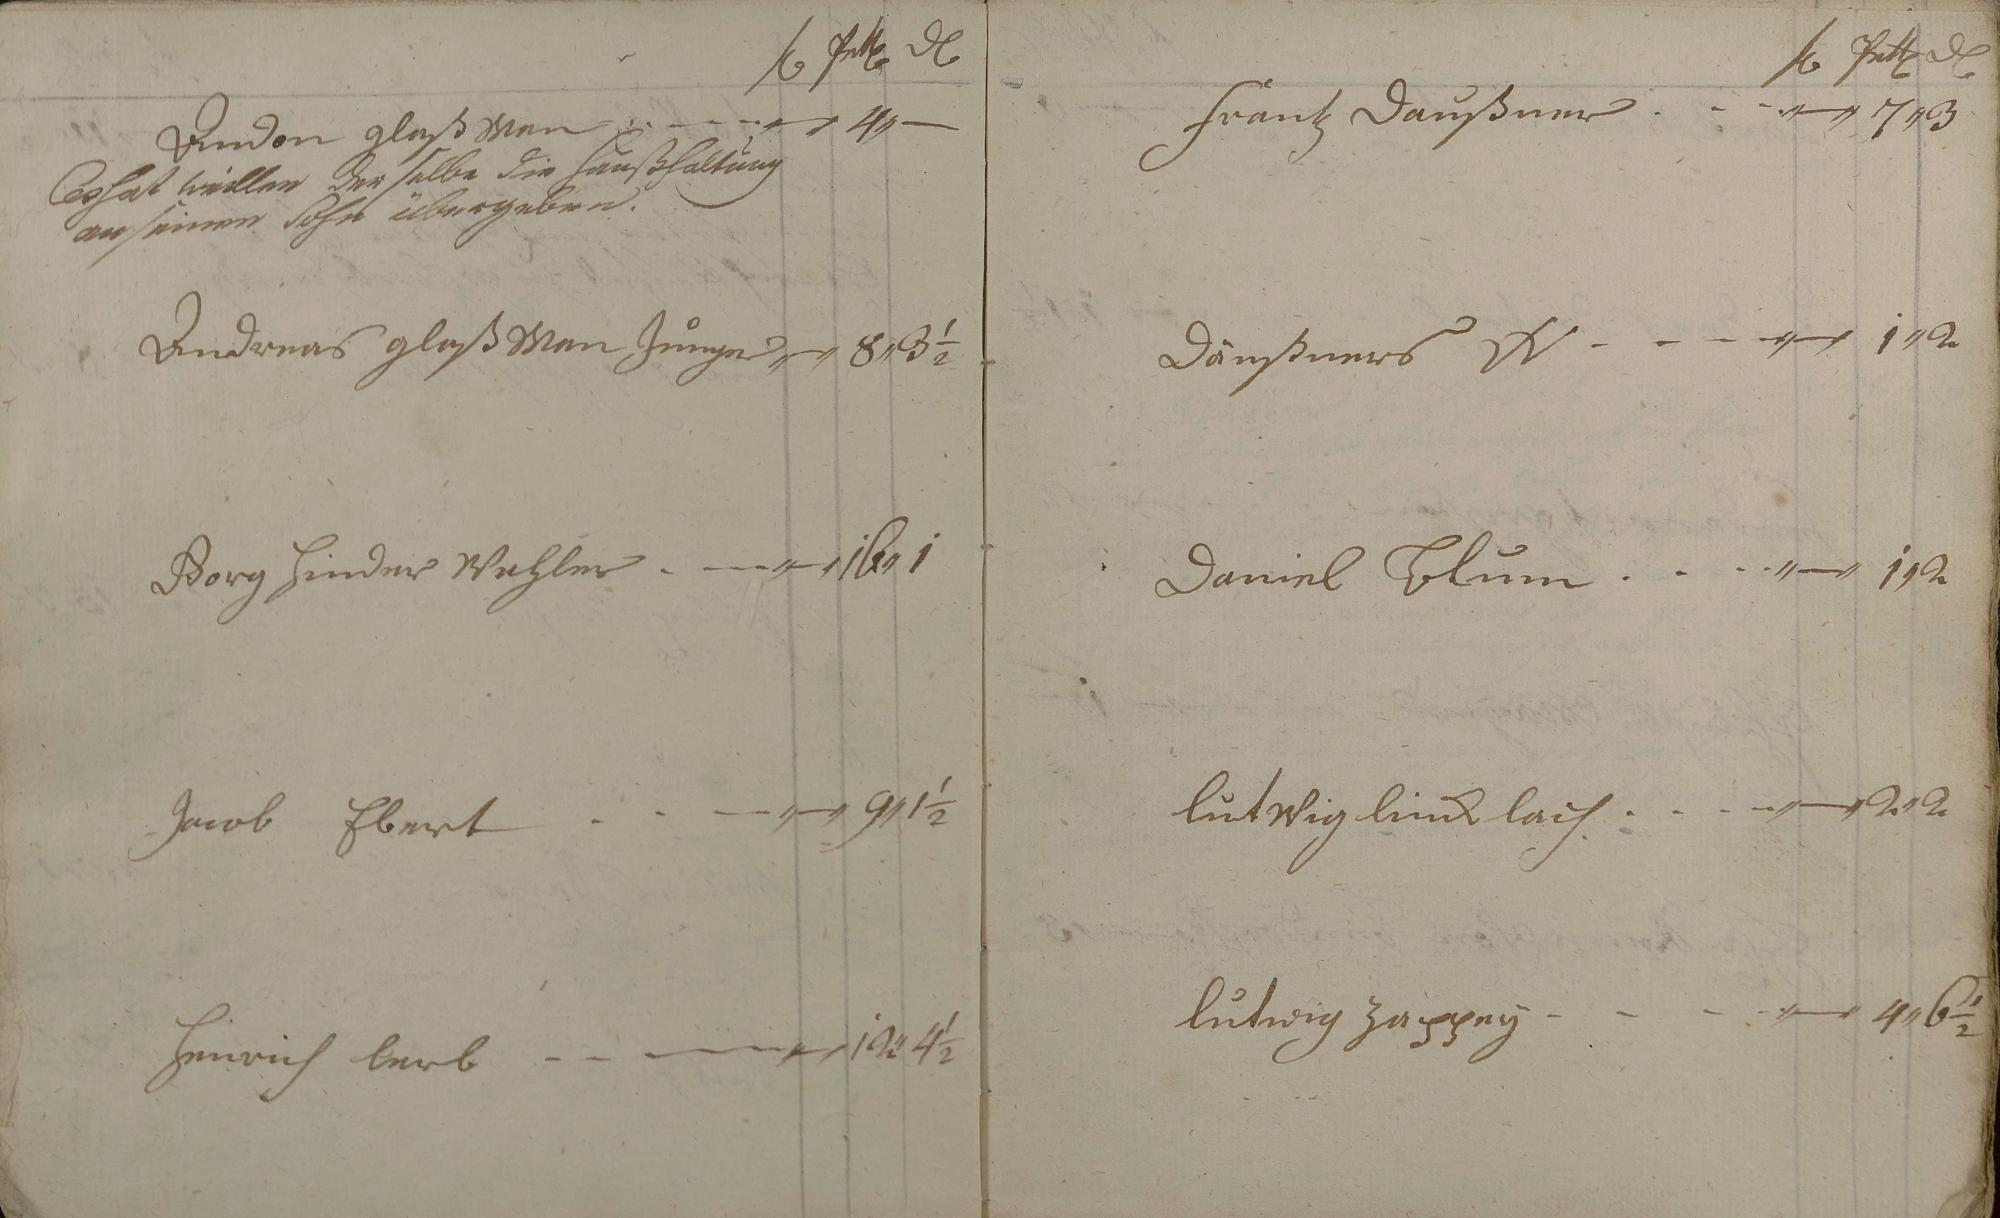 fl btz d
Andon glaß Man - - - „ — „ 4 „ —
Es hat weillen der selbe die haußhaltung
an seinen Sohn übergeben.
Andreas glaß Man Junger „ — „ 8 „ 3 1/2
Borg hinder Wehler . - - „ — „ 16 „ 1
Jacob Ebert - - - „ — „ 9 „ 1 1/2
Heinrich lerb - - — „ — „ 12 „ 4 1/2
fl btz d
Frantz Daußner . - - „ — „ 7 „ 3
Daußners W - - - „ — „ 1 „ 2
Daniel Blum . - - „ — „ 1 „ 2
lutWig lintz lach . - - - „ — „ 2 „ 2
lutwig Zappey - - - - „ — „ 4 „ 6 1/2